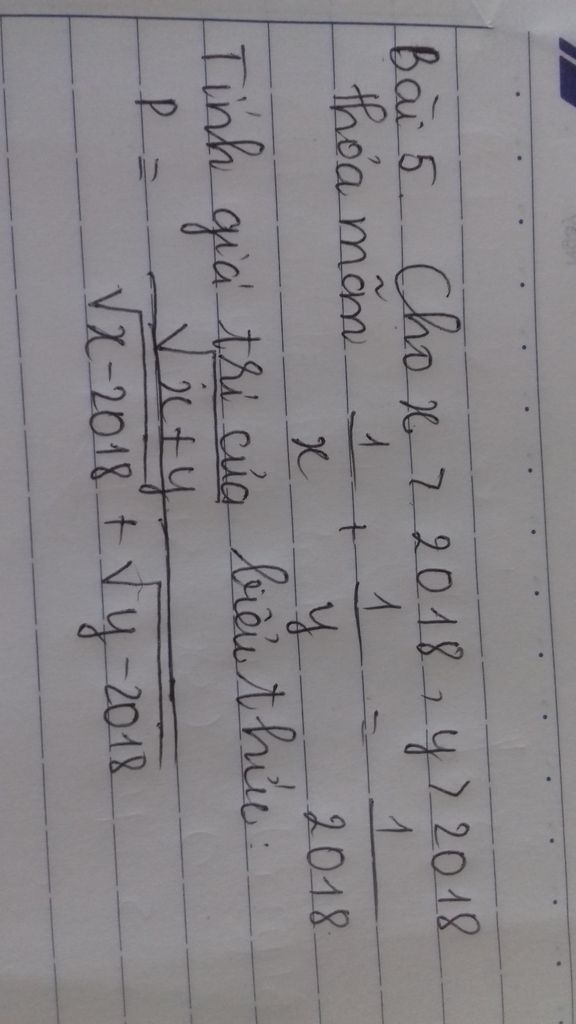 Bài 5. Cho x > 2018, y > 2018
thỏa mãn 1/x + 1/y = 1/2018
Tính giá trị của biểu thức:
P = √(x+y) / (√(x-2018) + √(y-2018))